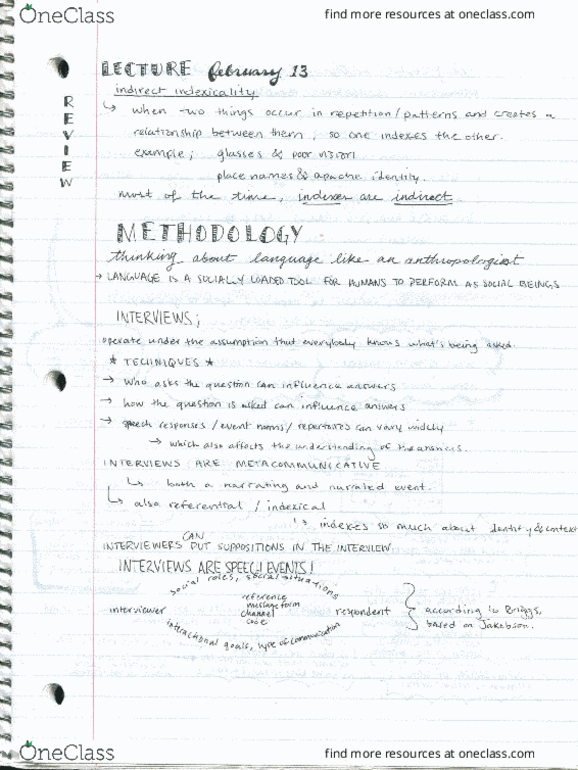 OneClass
find more resources at oneclass.com
LECTURE february 13
REVIEW
indirect indexicality
↳ when two things occur in repetition/patterns and creates a
relationship between them, so one indexes the other.
example; glasses & poor vision
place names & apache identity.
most of the time, indexes are indirect
METHODOLOGY
thinking about language like an anthropologist
→ LANGUAGE IS A SOCIALLY LOADED TOOL FOR HUMANS TO PERFORM AS SOCIAL BEINGS
INTERVIEWS;
operate under the assumption that everybody knows what's being asked.
* TECHNIQUES *
→ who asks the question can influence answers
→ how the question is asked can influence answers
→ speech responses/event norms/repertoires can vary widely
→ which also affects the understanding of the answers.
INTERVIEWS ARE METACOMMUNICATIVE
↳ both a narrating and narrated event.
↳ also referential / indexical
↳ indexes so much about identity & context
CAN
INTERVIEWERS PUT SUPPOSITIONS IN THE INTERVIEW.
INTERVIEWS ARE SPEECH EVENTS!
social roles, social situations
reference
message form
interviewer channel respondent according to Briggs,
code based on Jakobson.
interactional goals, type of communication
OneClass
find more resources at oneclass.com